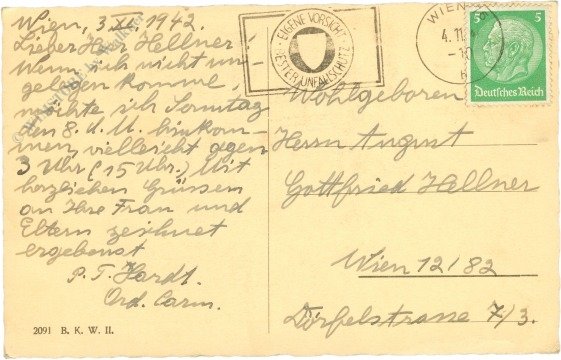 Wien, 3 XI. 1942.
Lieber Herr Hellner!
Wenn ich nicht un-
gelegen komme,
möchte ich Sonntag
den 8. d. M. hinkom-
men, vielleicht gegen
3 Uhr (15 Uhr.) Mit
herzlichen Grüssen
an Ihre Frau und
Eltern zeichnet
ergebenst
P. T. Hardt.
Ord. Carm.
2091 B. K. W. II.
EIGENE VORSICHT
BESTER UNFALLSCHUTZ
WIEN
4. 11.
5 5
Deutsches Reich
Wohlgeboren
Herrn August
Gottfried Hellner
Wien 12/82
Dörfelstrasse 7/3.